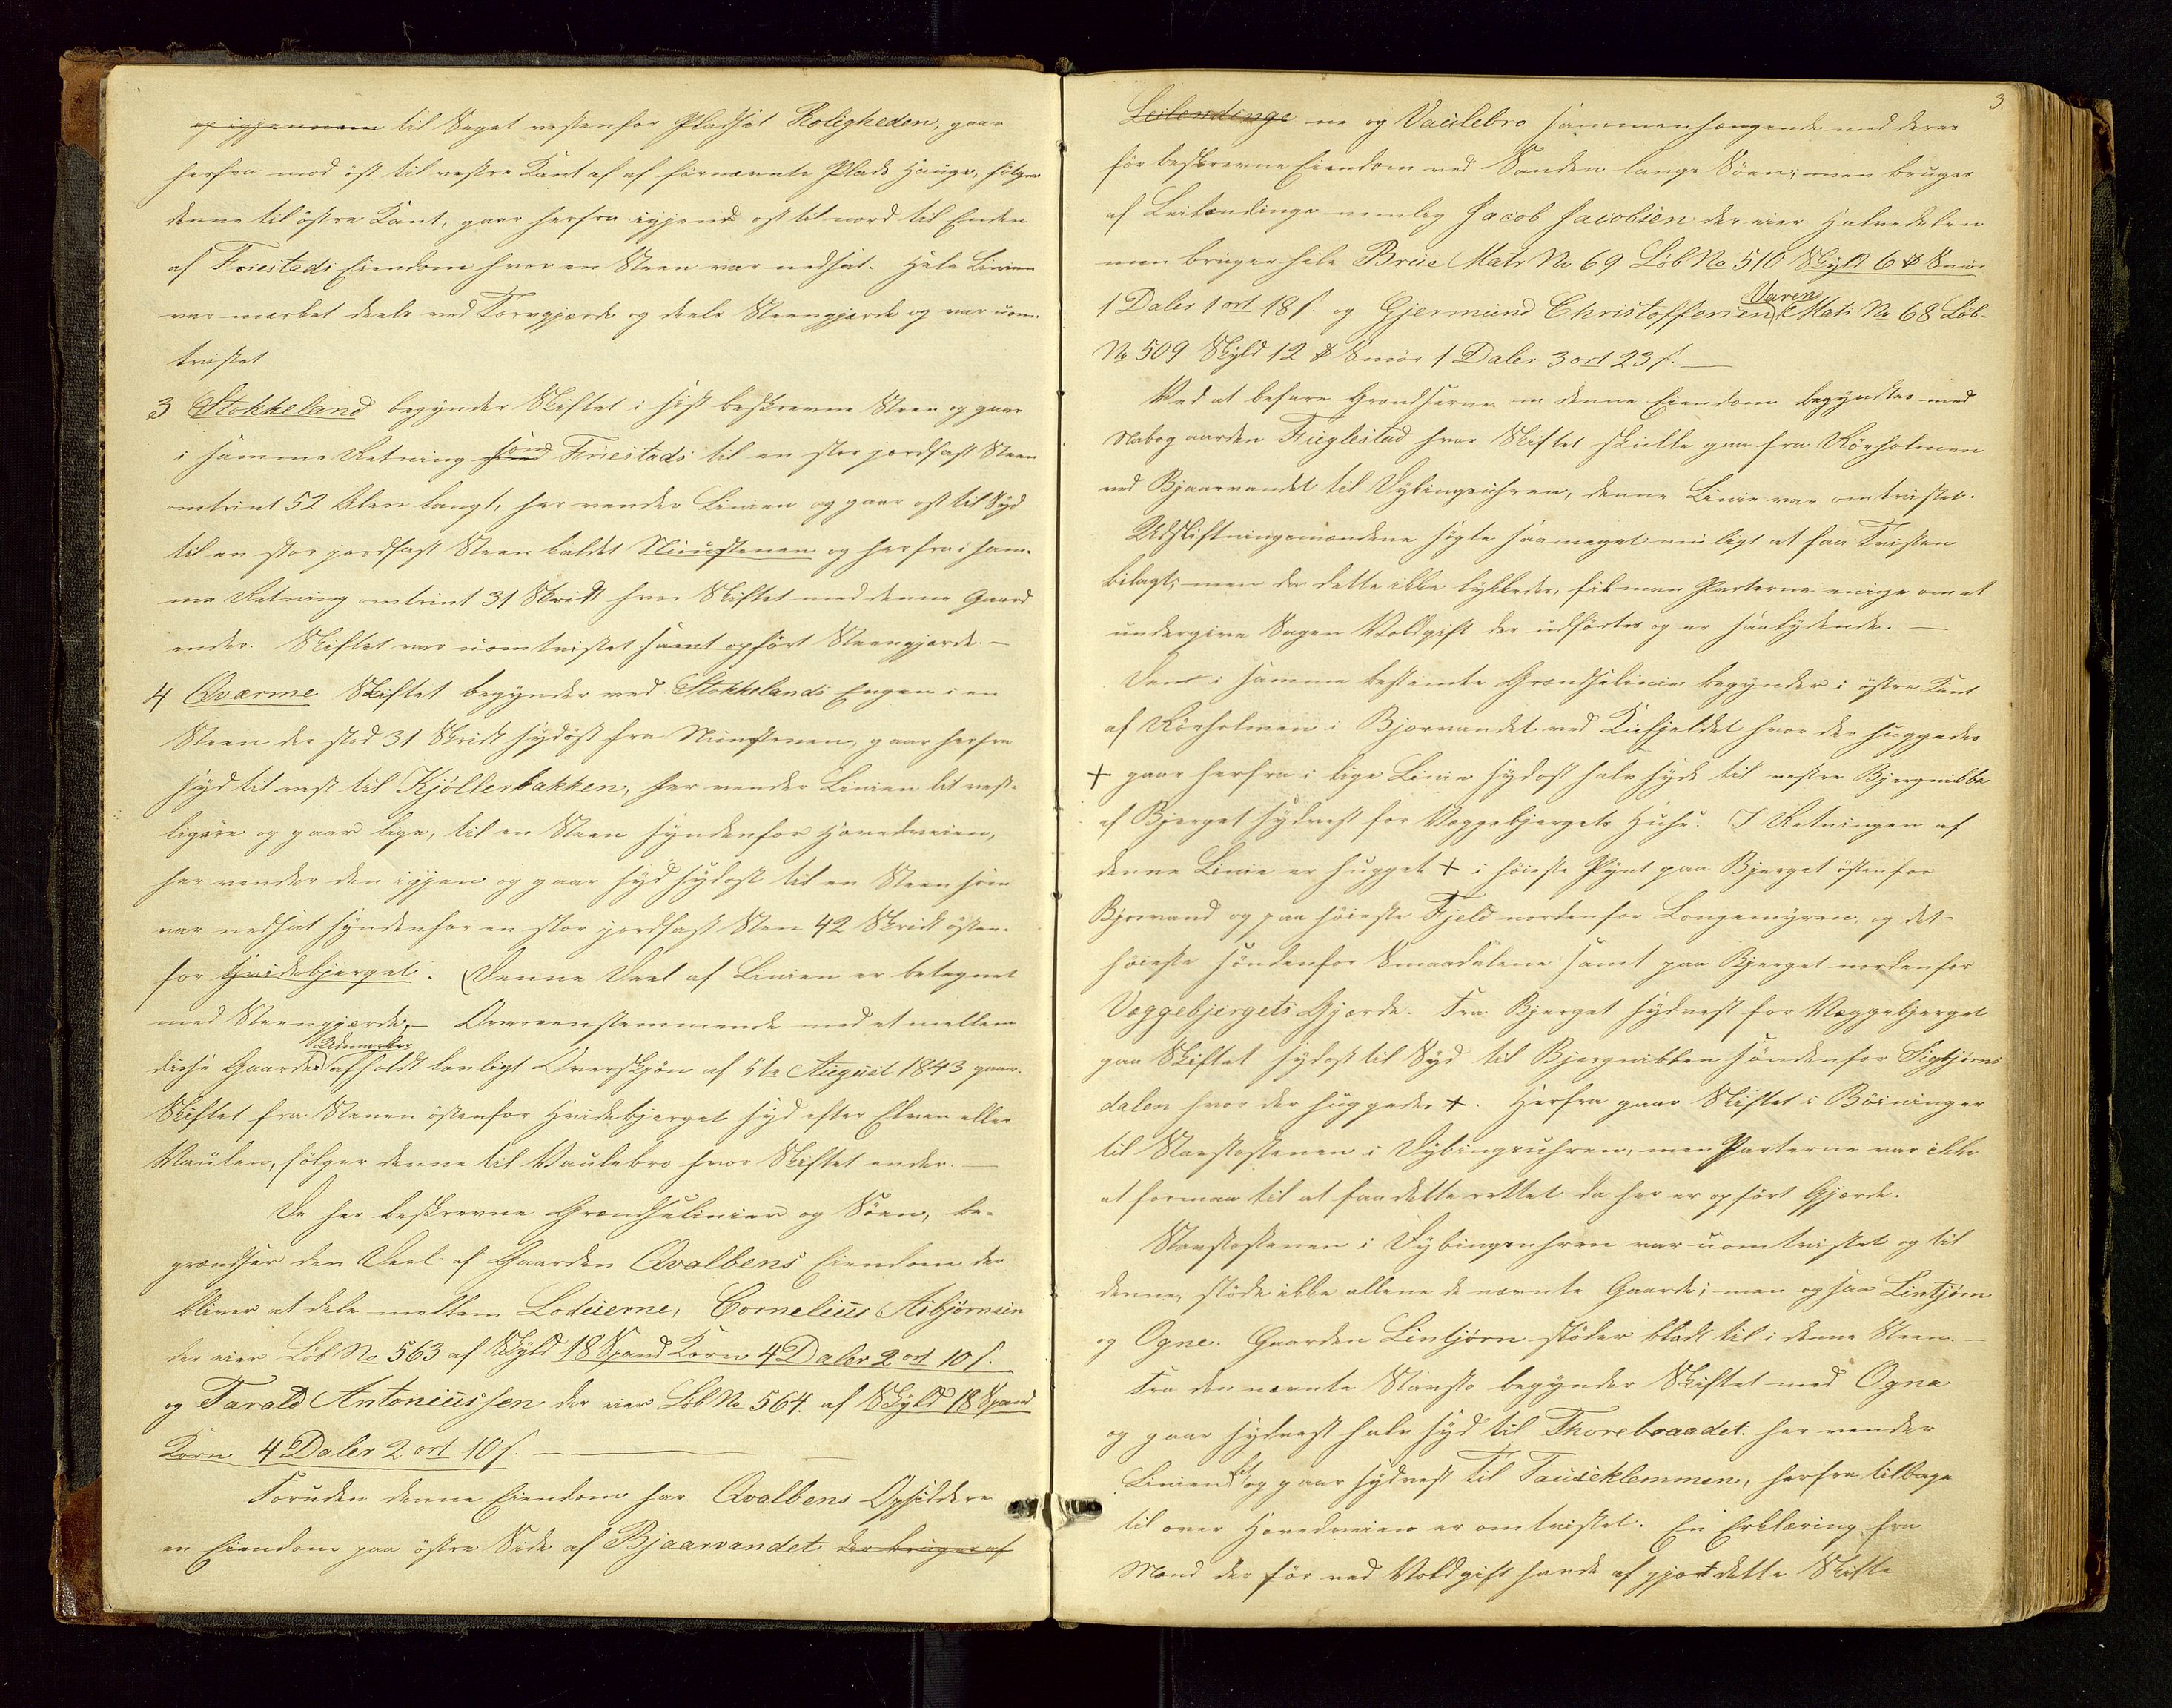 op igjennem til Vaget vestenfor Pladsen Roligheden, gaar
herfra mod øst til vestre Kant af af førnævnte Plads Hauge, følger
denne til østre Kant, gaar herfra igjen ost til nord til Enden
af Friestads Eiendom hvor en Steen var nedsat. Hele Linien
var mærket deels ved Torvgjærde og deels Steengjærde og var uom-
tvistet
3 Stokkeland begynder Skiftet i sidst beskrevne Steen og gaar
i samme Retning som Friestads til en stor jordfast Steen
omtrint 52 Alen langt, her vender Linien og gaar ost til Syd
til en stor jordfast Steen kaldet Niunstenen og herfra i sam-
me Retning omtrint 31 Skridt hvor Skiftet med denne Gaard
ender. Skiftet var uomtvistet samt opført Steengjærde. —
4 Qværme Skiftet begynder ved Stokkelands Engen i en
Steen der stod 31 Skridt sydøst fra Niunstenen, gaar herfra
syd til vest til Kjøllerbakken, her vender Linien lit vest-
ligere og gaar lige, til en Steen syndenfor Hovedveien,
her vender den igjen og gaar syd sydost til en Steen som
var nedsat syndenfor en stor jordfast Sten 42 Skridt østen-
for Hvidebjerget. Denne Deel af Linien er betegnet
med Steengjærde, — Overeenstemmende med et mellem
disse Gaardes Udmarker afholdt lovligt Overskjøn af 5te August 1843 gaar
Skiftet fra Stenen østenfor Hvidebjerget syd efter Elven eller
Vaulen, følger denne til Vaulebro hvor Skiftet ender. —
De her beskrevne Grændselinier og Søen, be-
grændser den Deel af Gaarden Qvalbens Eiendom der
bliver at dele mellem Lodeierne, Cornelius Asbjørnsen
der eier Løb No 563 af Skyld 18 Spand Korn 4 Daler 2 ort 10 s.
og Tarald Antoniussen der eier Løb No 564. af Skyld 18 Spand
Korn 4 Daler 2 ort 10 s. —
Foruden denne Eiendom har Qvalbens Opsiddere
en Eiendom paa østre Side af Bjaarvandet der bruges af
3
Leilændinge ne og Vaulebro sammenhængende med deres
før beskrevne Eiendom ved Sanden langs Søen; men bruges
af Leilændinge nemlig Jacob Jacobsen der eier Halvedelen
men bruger hele Brue Matr No 69 Løb No 510 Skyld 6 ℔ Smør
1 Daler 1 ort 18 s. og Gjermund Christoffersen Varen Matr No 68 Løb-
No 509 Skyld 12 ℔ Smør 1 Daler 3 ort 23 s. —
Ved at befare Grændserne om denne Eiendom begyndtes med
Nabogaarden Fuglestad hvor Skiftet skulle gaa fra Rørholmen
ved Bjaarvandet til Dybingsuhren, denne Linie var omtvistet.
Udskiftningsmændene søgte saameget muligt at faa Tvisten
bilagt; men da dette ikke lykkedes, fik man Parterne enige om at
undergive Sagen Voldgift der udførtes og er saalydende. —
Den i samme bestemte Grændselinie begynder i østre Kant
af Rørholmen i Bjorvandet ved Kufjeldet hvor der huggedes
+ gaar herfra i lige Linie sydost halv syd til vestre Bjergnibba
af Bjerget sydvest for Væggebjergets Huse. I Retningen af
denne Linie er hugget + i høieste Pynt paa Bjerget østenfor
Bjorvand og paa høieste Fjeld nordenfor Longemyren, og det
høieste søndenfor Smaadalene samt paa Bjerget nordenfor
Væggebjergets Gjærde. Fra Bjerget sydvest for Væggebjerget
gaa Skiftet sydost til Syd til Bjergnibben søndenfor Sigbjørns
dalen hvor der huggedes +. Herfra gaar Skiftet i Bøininger
til Stavstostenen i Dybingsuhren, men Parterne var ikke
at formaa til at faa dette rettet da her er opført Gjærde.
Stavstostenen i Dybingsuhren var uomtvistet og til
denne, støde ikke allene de nævnte Gaarde; men ogsaa Lintjørn
og Ogne. Gaarden Lintjørn støder blodt til i denne Steen. —
Fra den nævnte Stavsto begynder Skiftet med Ogne
og gaar sydvest halv syd til Thorebraadet. her vender
Linien lit og gaar sydvest til Tauseklemmen, herfra tilbage
til over Hovedveien er omtvistet. En Erklæring fra
Mænd der før ved Voldgift havde afgjort dette Skifte